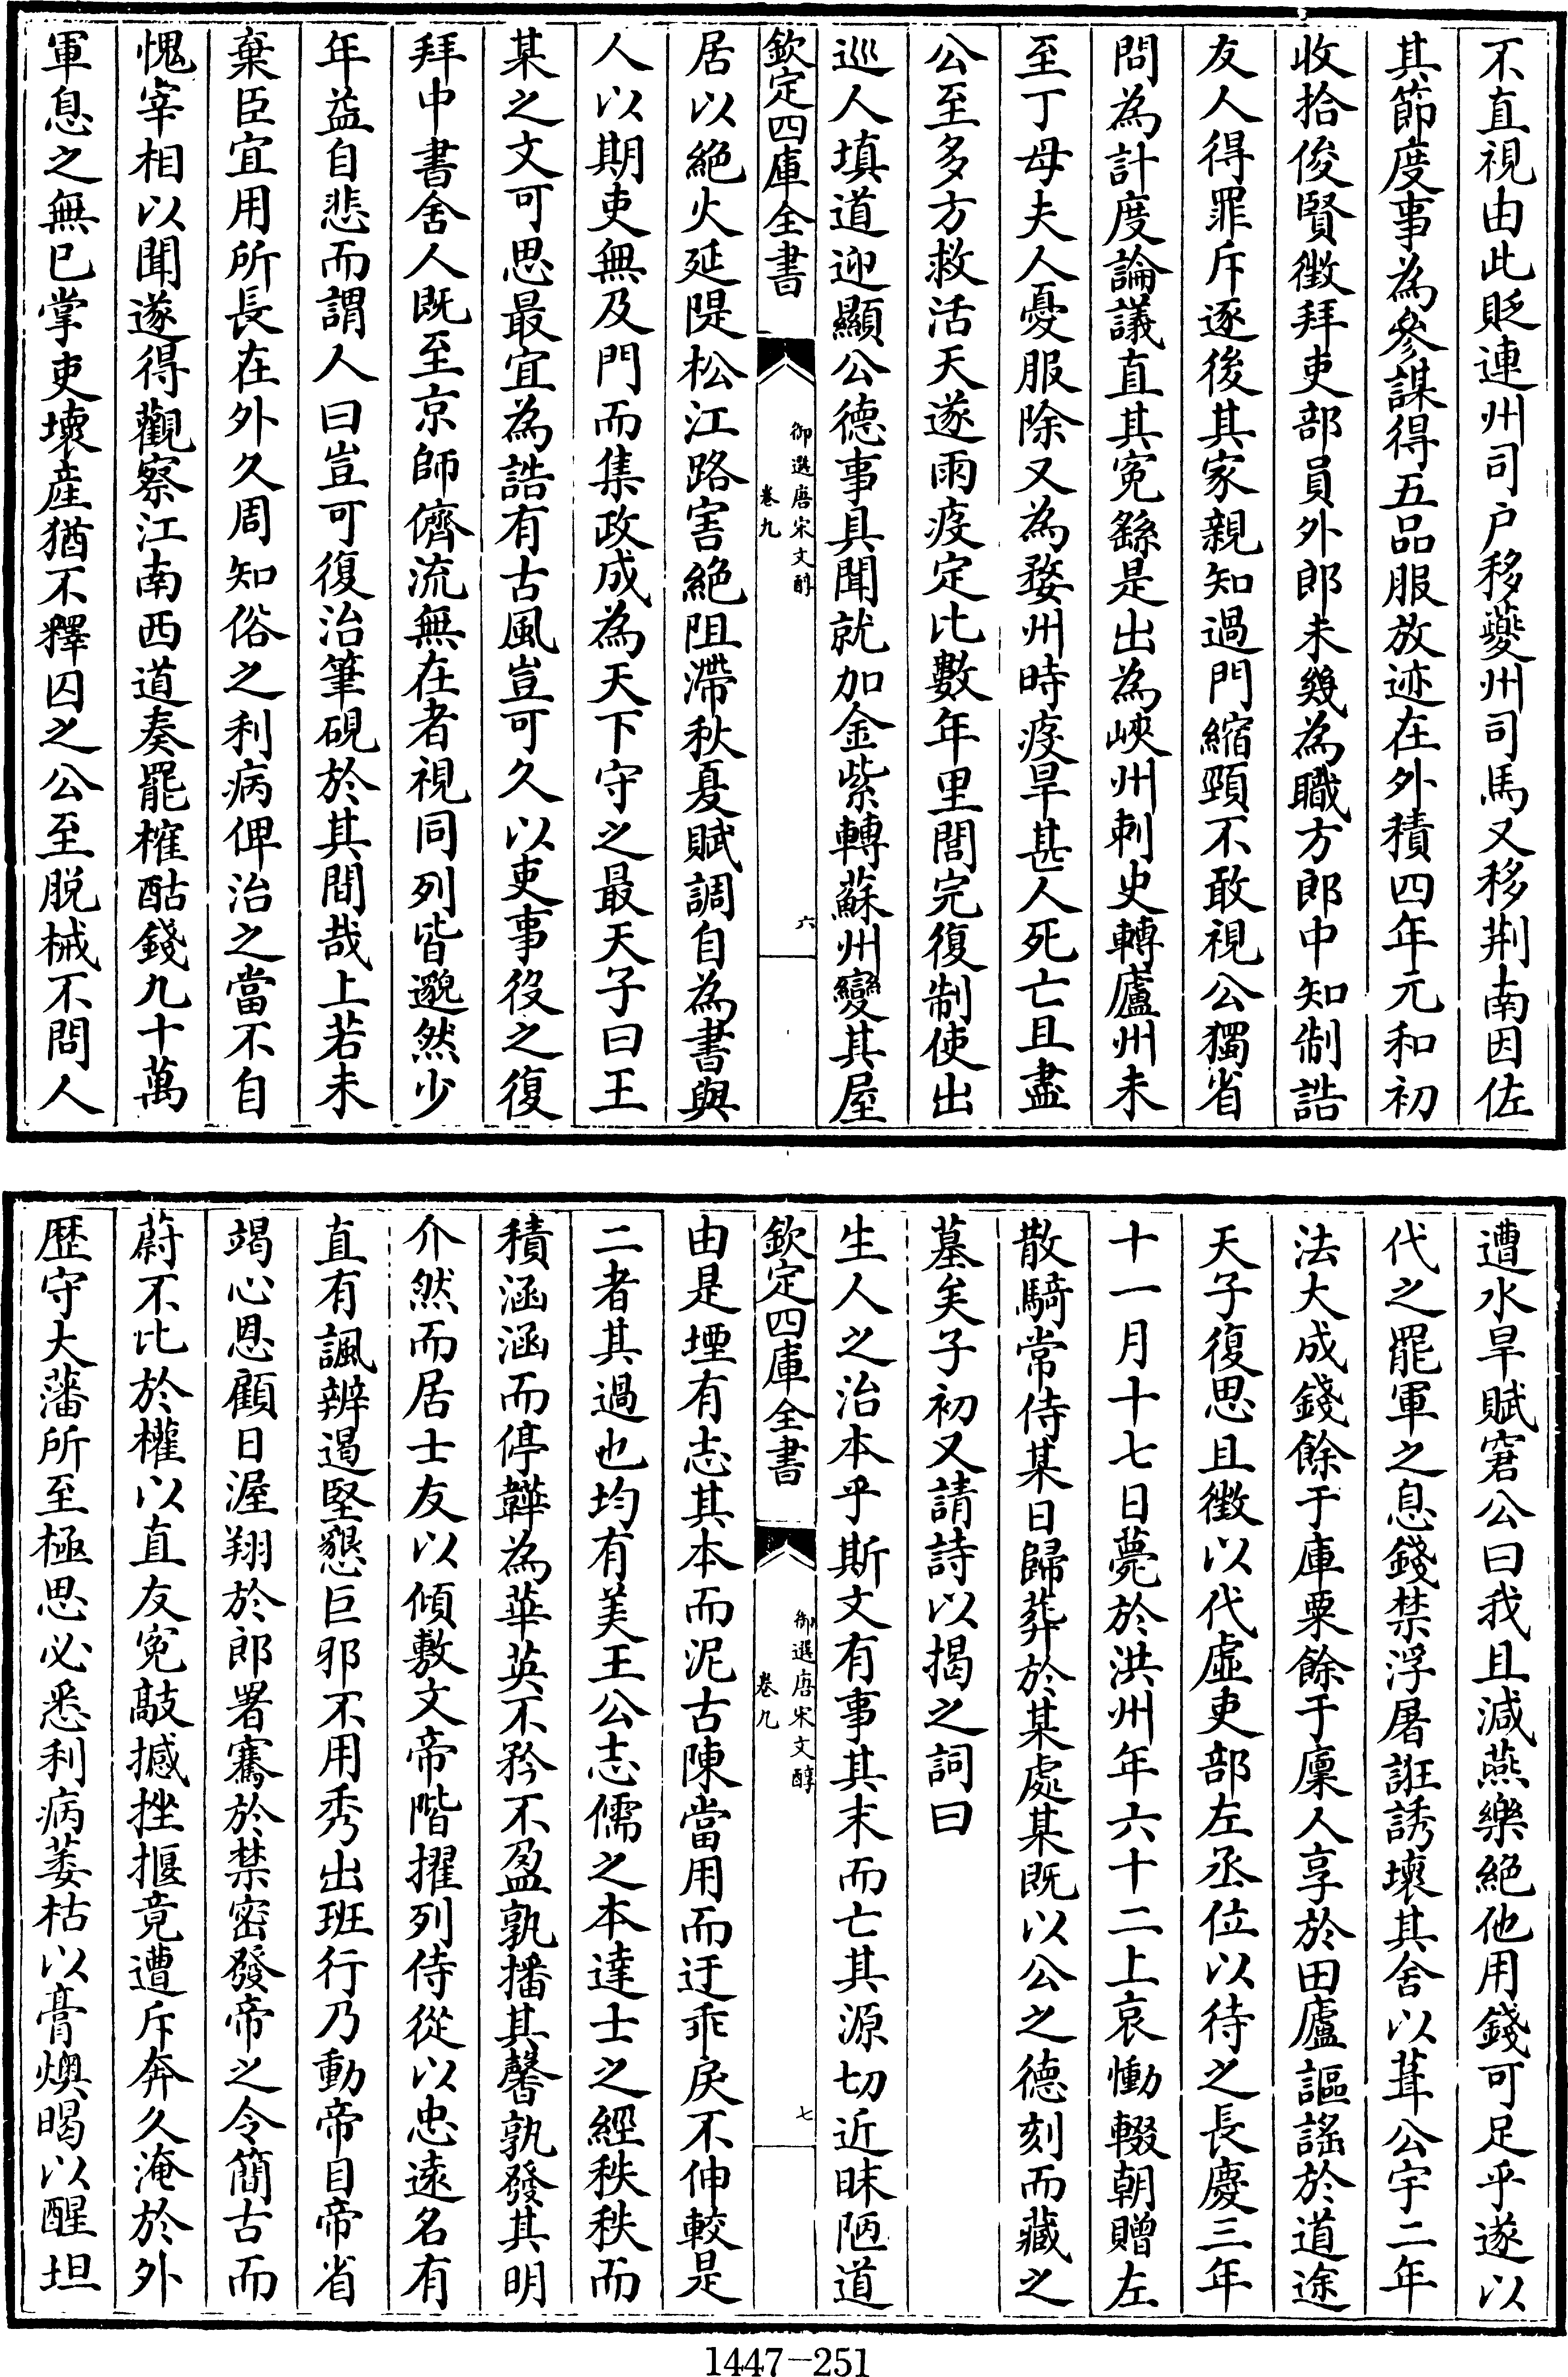 不直視由此貶連州司户移夔州司馬又移荆南因佐
其節度事為參謀得五品服放迹在外積四年元和初
收拾俊賢徵拜吏部員外郎未幾為職方郎中知制誥
友人得罪斥逐後其家親知過門縮頸不敢視公獨省
問為計度論議直其寃繇是出為峽州刺史轉廬州未
至丁母夫人憂服除又為婺州時疫旱甚人死亡且盡
公至多方救活天遂雨疫定比數年里閭完復制使出
巡人填道迎顯公德事具聞就加金紫轉蘇州變其屋
欽定四庫全書
御選唐宋文醇
卷九
六
居以絶火延隄松江路害絶阻滯秋夏賦調自為書與
人以期吏無及門而集政成為天下守之最天子曰王
某之文可思最宜為誥有古風豈可久以吏事役之復
拜中書舍人既至京師儕流無在者視同列皆邈然少
年益自悲而謂人曰豈可復治筆硯於其間哉上若未
棄臣宜用所長在外久周知俗之利病俾治之當不自
愧宰相以聞遂得觀察江南西道奏罷榷酤錢九十萬
軍息之無已掌吏壞產猶不釋囚之公至脱械不問人
遭水旱賦窘公曰我且減燕樂絶他用錢可足乎遂以
代之罷軍之息錢禁浮屠誑誘壞其舍以葺公宇二年
法大成錢餘于庫粟餘于廩人享於田廬謳謠於道途
天子復思且徵以代虛吏部左丞位以待之長慶三年
十一月十七日薨於洪州年六十二上哀慟輟朝贈左
散騎常侍某日歸葬於某處某既以公之德刻而藏之
墓矣子初又請詩以揭之詞曰
生人之治本乎斯文有事其末而亡其源切近昧陋道
欽定四庫全書
御選唐宋文醇
卷九
七
由是堙有志其本而泥古陳當用而迂乖戾不伸較是
二者其過也均有美王公志儒之本達士之經秩秩而
積涵涵而停韡為華英不矜不盈孰播其馨孰發其明
介然而居士友以傾敷文帝階擢列侍從以忠遠名有
直有諷辨遏堅懇巨邪不用秀出班行乃動帝目帝省
竭心恩顧日渥翔於郎署騫於禁密發帝之令簡古而
蔚不比於權以直友寃敲撼挫揠竟遭斥奔久淹於外
歷守大藩所至極思必悉利病萎枯以膏燠暍以醒坦
1447-251